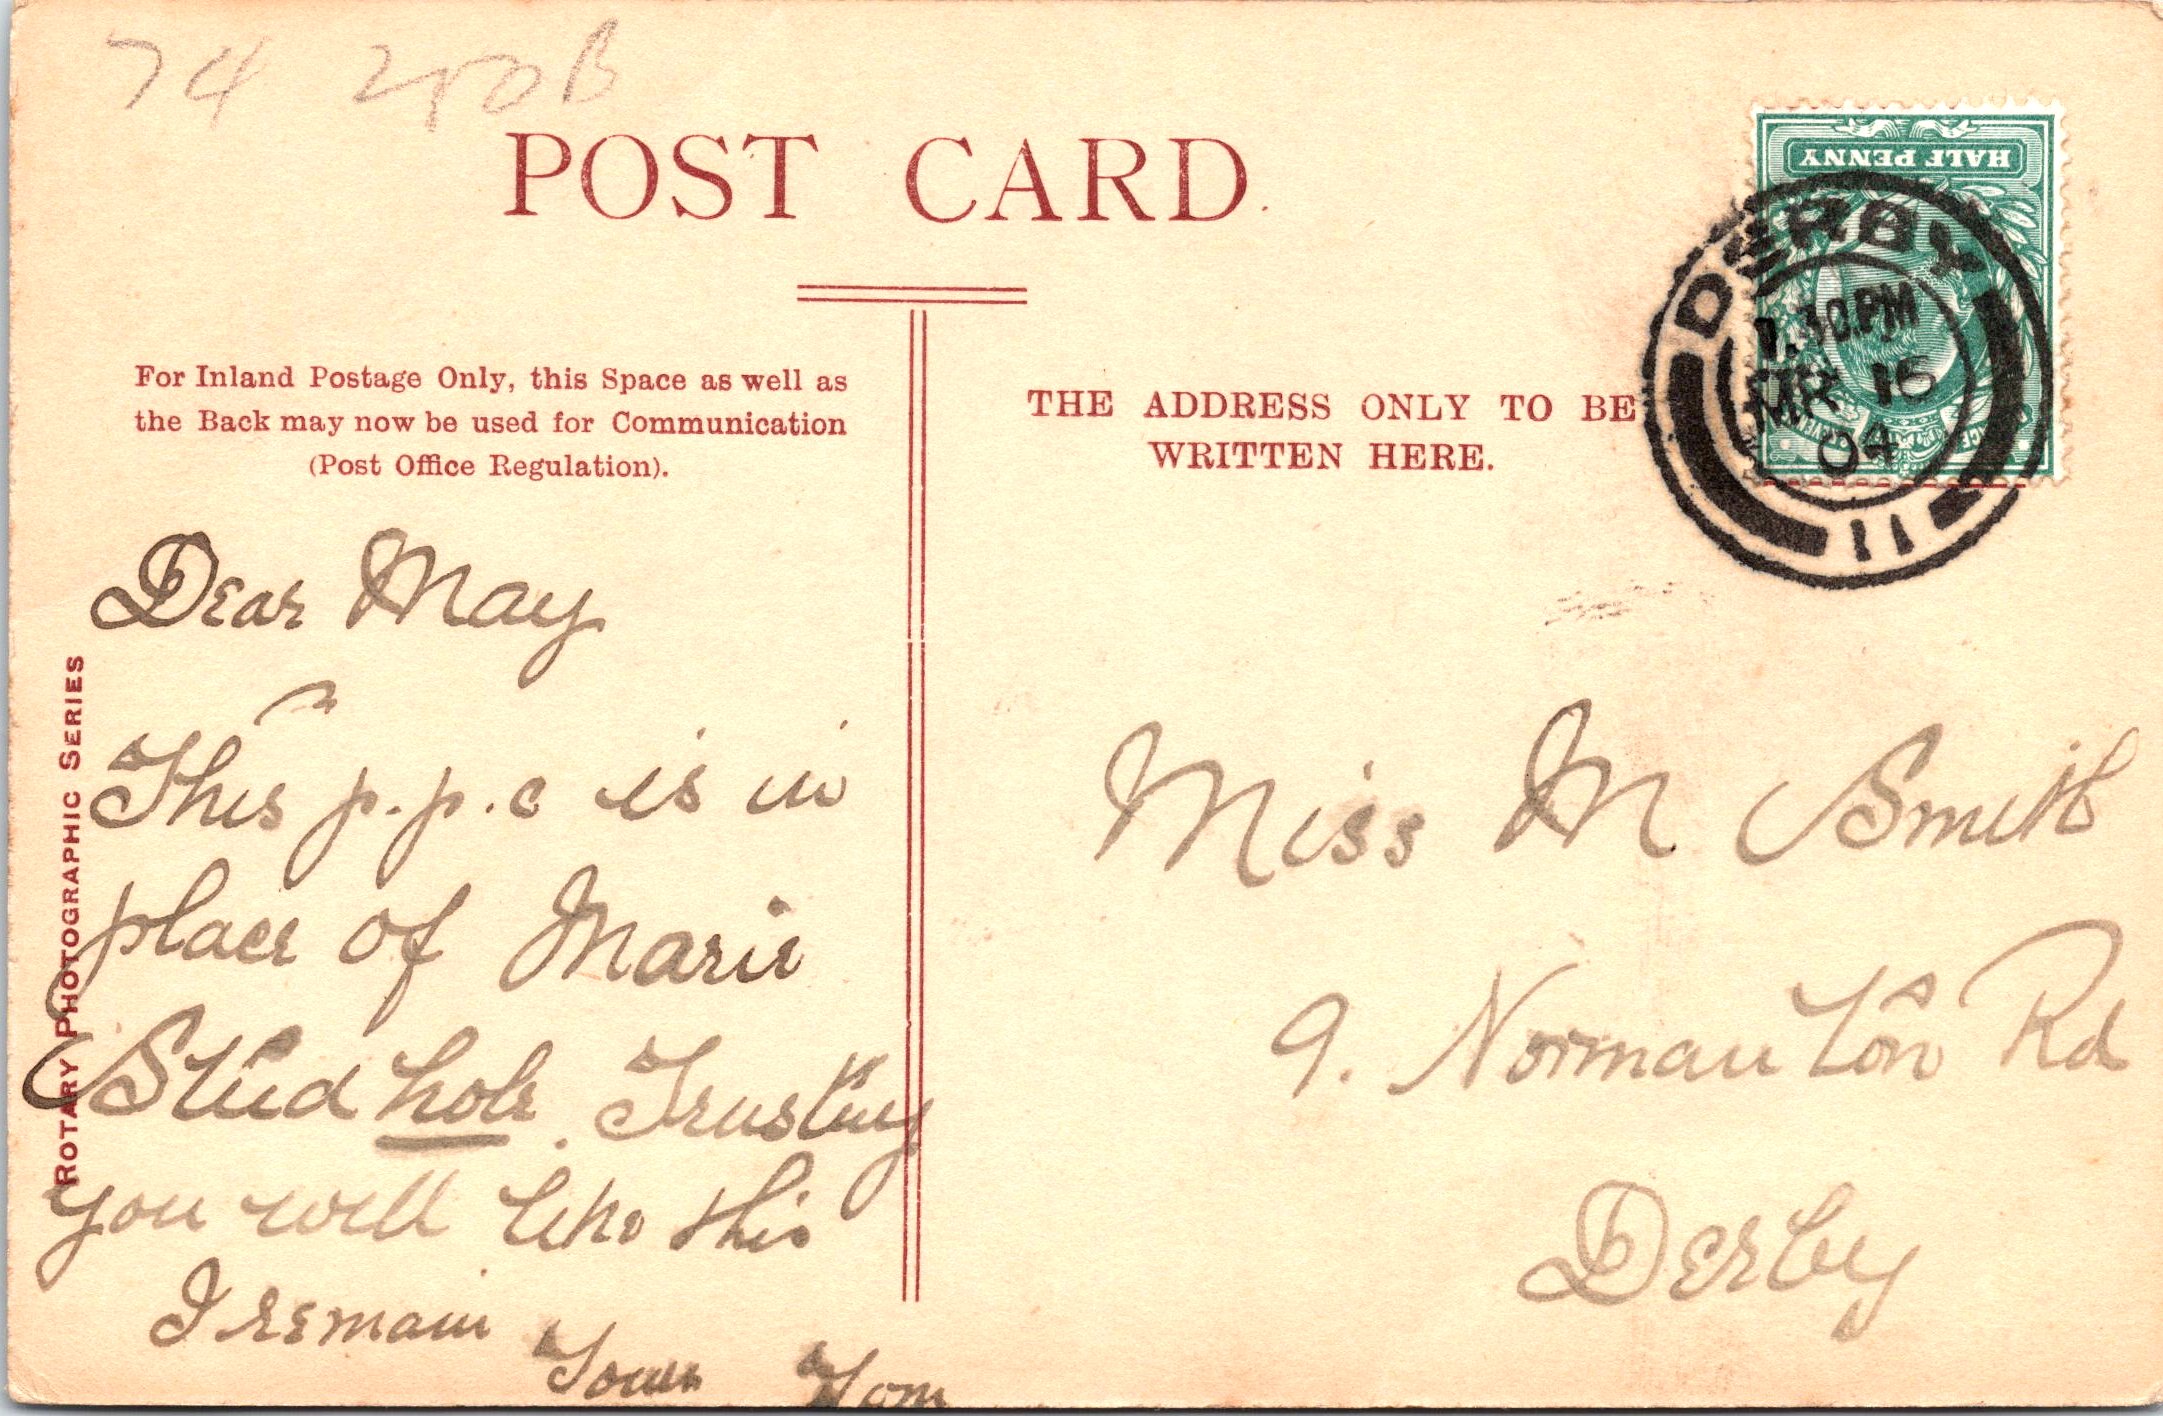 74
POST CARD.
For Inland Postage Only, this Space as well as
the Back may now be used for Communication
(Post Office Regulation).
THE ADDRESS ONLY TO BE
WRITTEN HERE.
HALF PENNY
DERBY
1.30PM
MR 16
04
11
ROTARY PHOTOGRAPHIC SERIES
Dear May
This p.p.c is in
place of Marie
Stud hole. Trusting
you will like this
I remain
Yours Tom
Miss M Smith
9. Normanton Rd
Derby